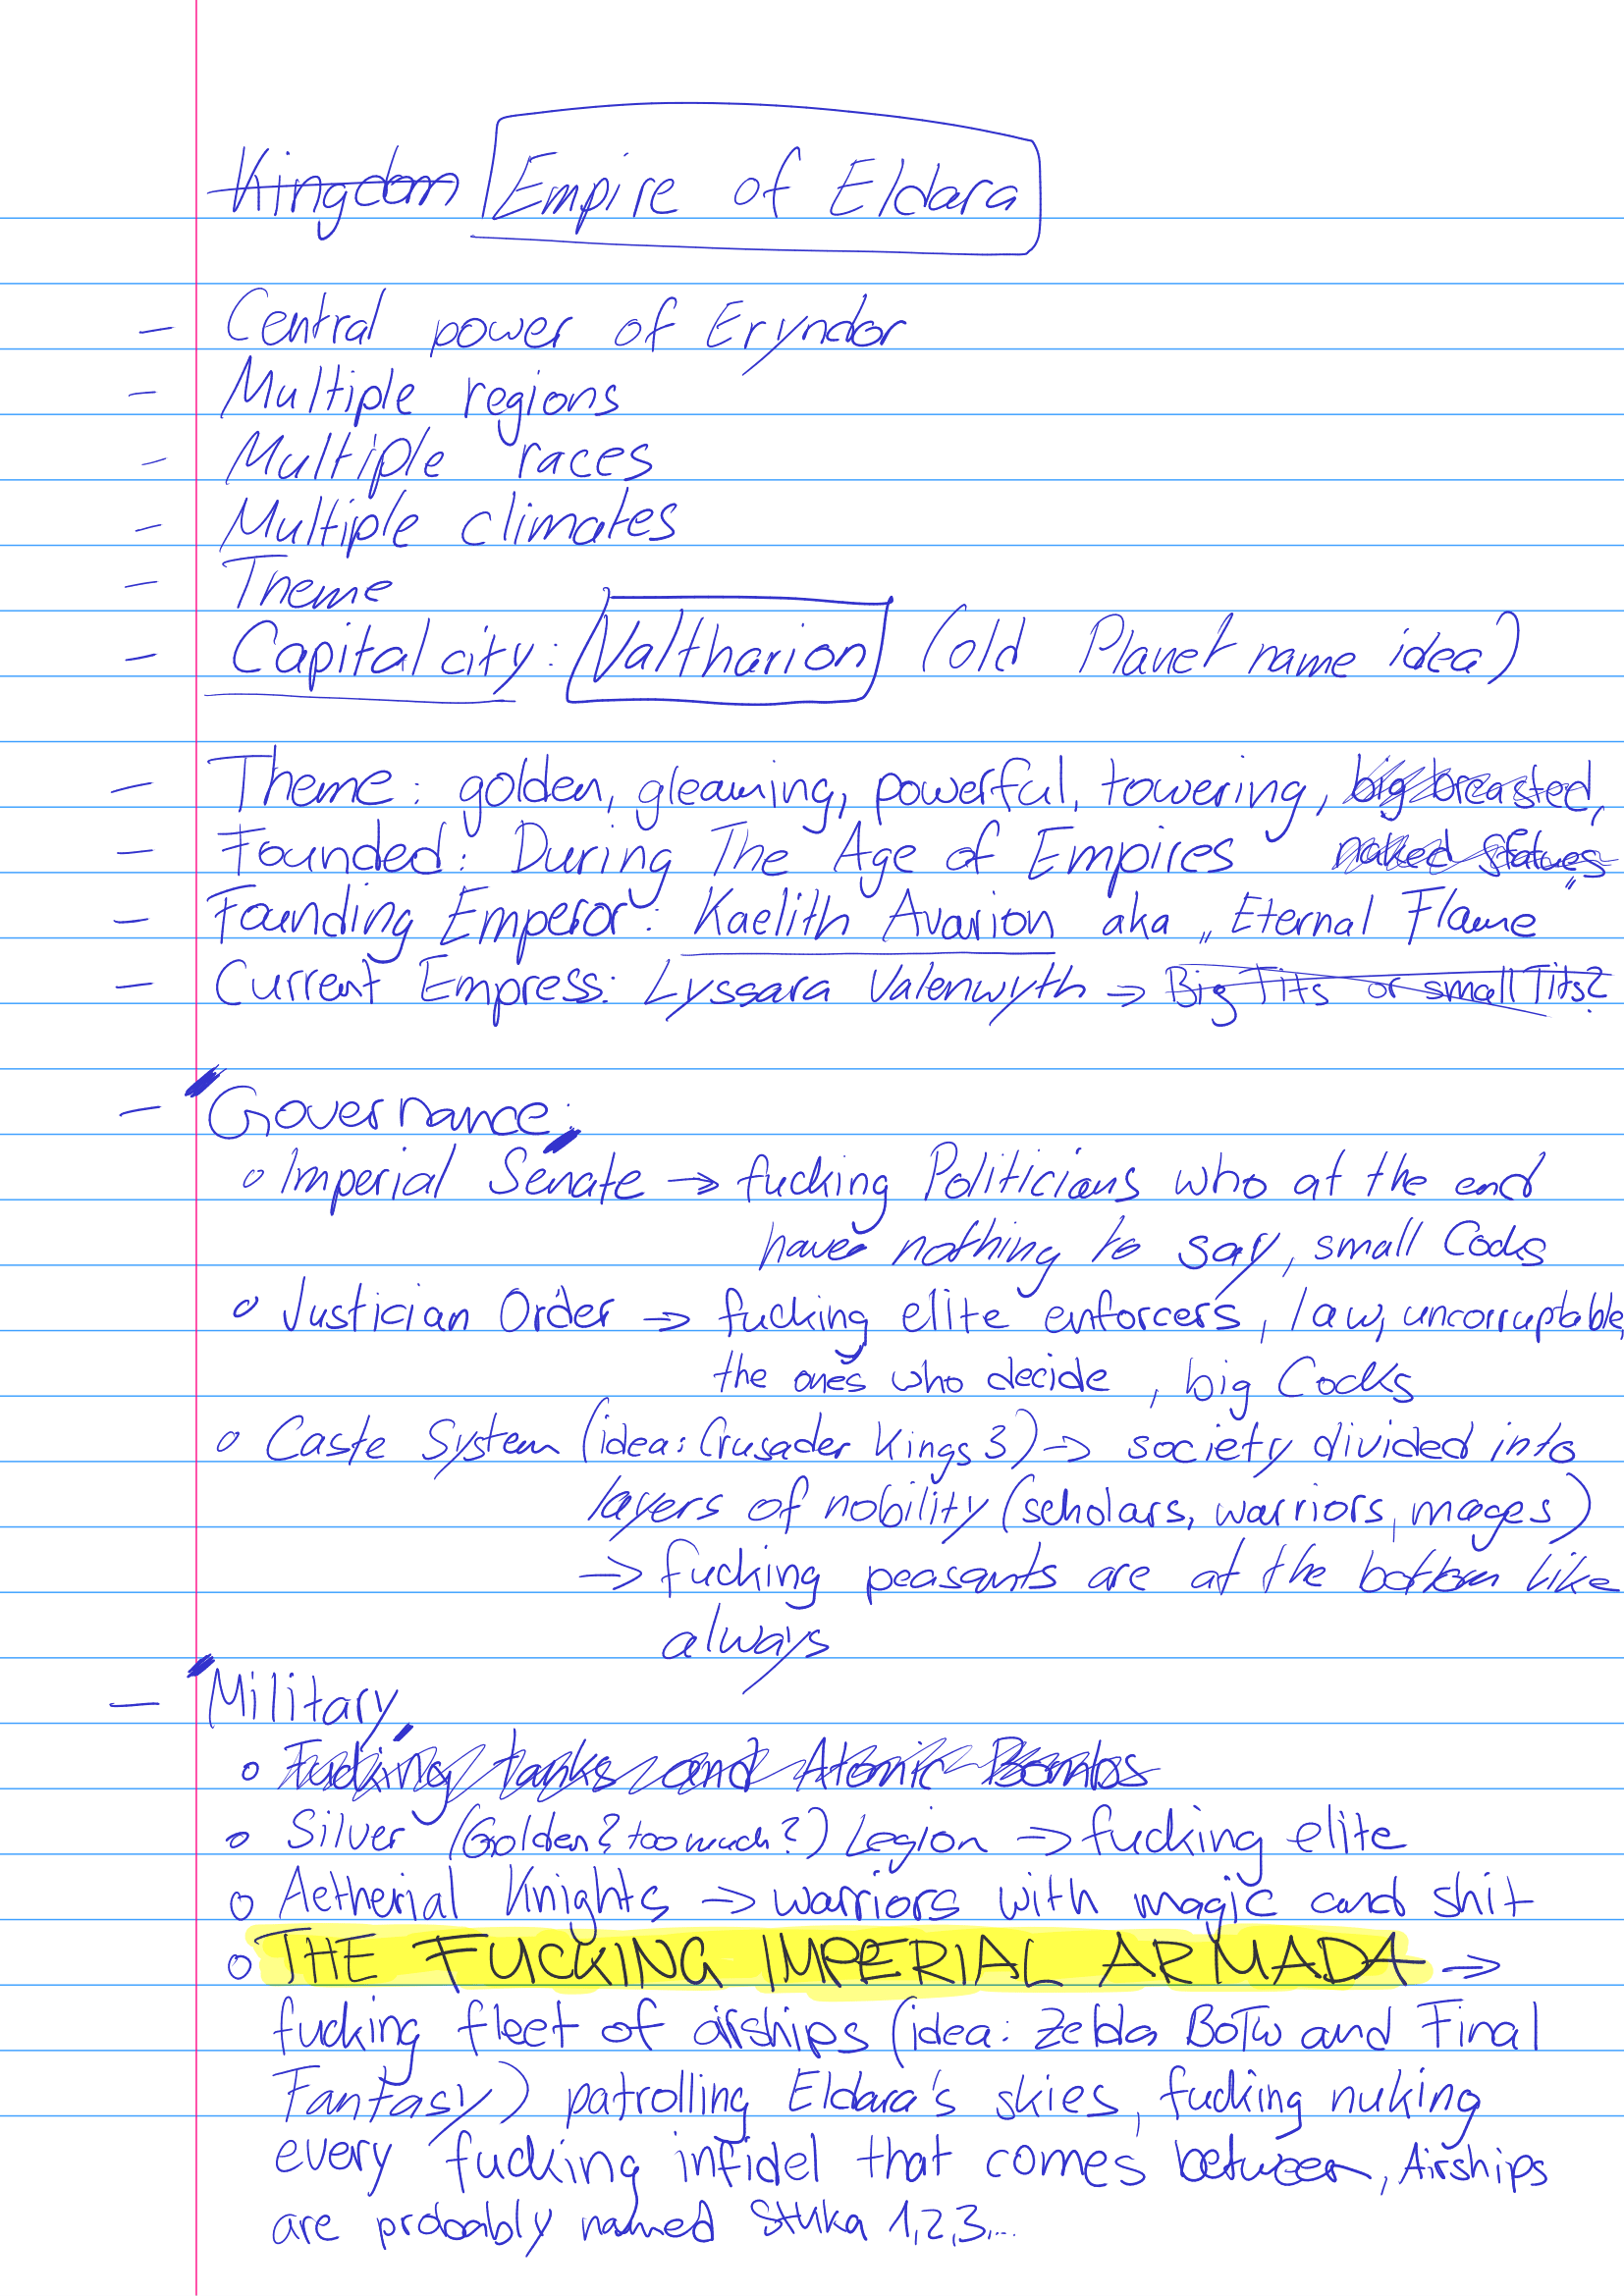 Kingdom Empire of Eldara
– Central power of Eryndor
– Multiple regions
– Multiple races
– Multiple climates
– Theme
– Capital city: Valtharion (old Planet name idea)
– Theme: golden, gleaming, powerful, towering, big breasted,
naked statues
– Founded: During The Age of Empires
– Founding Emperor: Kaelith Avarion aka „Eternal Flame“
– Current Empress: Lyssara Valenwyth → Big Tits or small Tits?
– Governance:
o Imperial Senate → fucking Politicians who at the end
have nothing to say, small Cocks
o Justician Order → fucking elite enforcers, law, uncorruptable,
the ones who decide, big Cocks
o Caste System (idea: Crusader Kings 3) → society divided into
layers of nobility (scholars, warriors, mages)
→ fucking peasants are at the bottom like
always
– Military
o Fucking tanks and Atomic Bombs
o Silver (Golden? too much?) Legion → fucking elite
o Aetherial Knights → warriors with magic and shit
o THE FUCKING IMPERIAL ARMADA →
fucking fleet of airships (idea: Zelda BoTw and Final
Fantasy) patrolling Eldara's skies, fucking nuking
every fucking infidel that comes between, Airships
are probably named Stuka 1,2,3,...